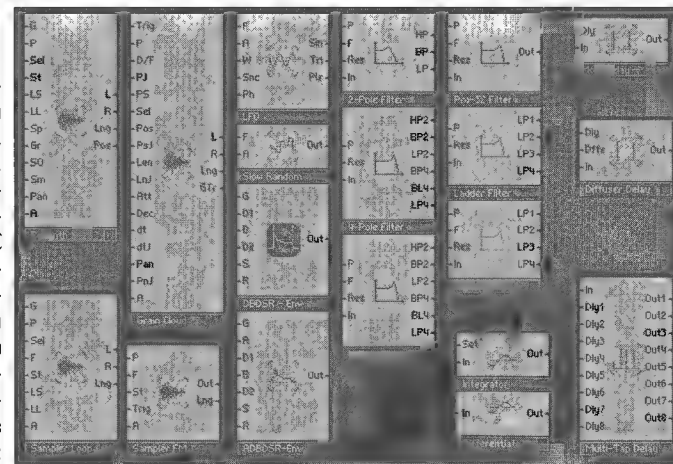 G
P
Sel
St
LS
LL
Sp
Gr
SO
Sm
Pan
A
L
R
Lng
Pos
G
P
Sel
F
St
LS
LL
A
L
R
Lng
Sampler Loop
Trig
P
D/F
PJ
PS
Sel
Pos
PsJ
Len
LnJ
Att
Dec
dt
dtJ
Pan
PnJ
A
L
R
Lng
GTr
Grain Cloud
P
F
St
Trig
A
Out
Lng
Sampler FM
F
A
W
Snc
Ph
Sin
Tri
Pls
LFO
F
A
Out
Slow Random
G
D1
B
D2
S
R
Out
DBDSR - Env
G
A
D1
B
D2
S
R
Out
ADBDSR-Env
P
F
Res
In
HP
BP
LP
2-Pole Filter
P
Res
In
HP2
BP2
LP2
BP4
BL4
LP4
4-Pole Filter
P
F
Res
In
HP2
BP2
LP2
BP4
BL4
LP4
P
F
Res
In
Out
Pro-52 Filter
P
Res
In
LP1
LP2
LP3
LP4
Ladder Filter
P
F
Res
In
LP1
LP2
LP3
LP4
Set
In
Out
Integrator
In
Out
Dly
In
Out
Dly
Dffs
In
Out
Diffuser Delay
In
Dly1
Dly2
Dly3
Dly4
Dly5
Dly6
Dly7
Dly8
Out1
Out2
Out3
Out4
Out5
Out6
Out7
Out8
Multi-Tap Delay